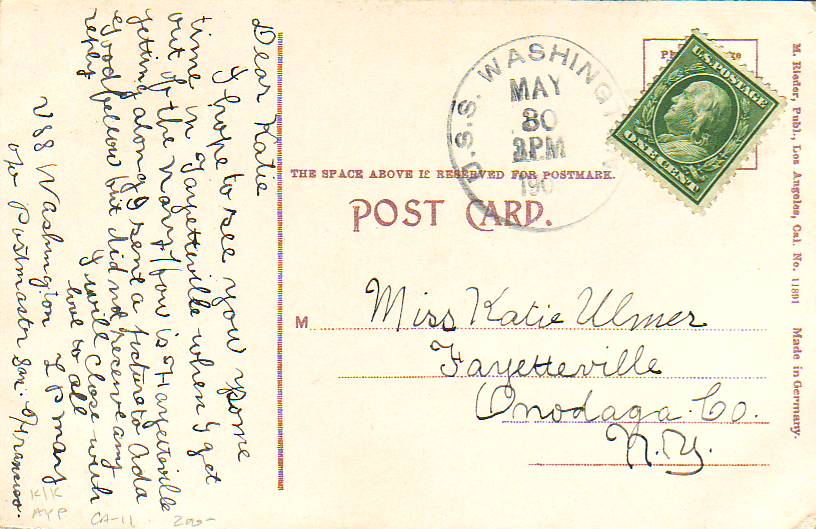 Dear Katie
I hope to see you some
time in Fayetteville when I get
out of the navy. How is Fayetteville
getting along I sent a picture to Ada
Goodfellow but did not receive any
reply I will close with
love to all
L P Mary
USS Washington
c/o Postmaster San Francisco.
K/K
AYP
CA-11
200-
U.S.S. WASHING
MAY
30
3 PM
190
U.S. POSTAGE
ONE CENT
THE SPACE ABOVE IS RESERVED FOR POSTMARK.
POST CARD.
M Miss Katie Ulmer
Fayetteville
Onodaga Co.
N.Y.
M. Rieder, Publ., Los Angeles, Cal. No. 11891 Made in Germany.